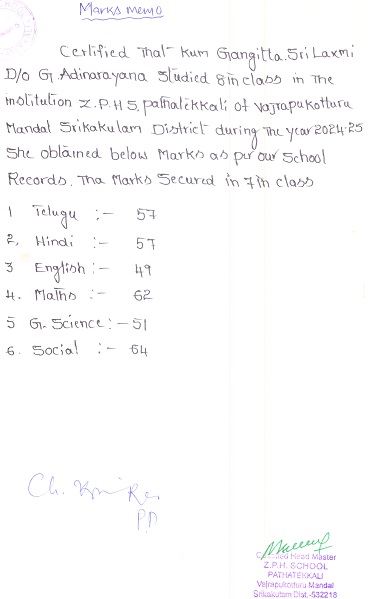 Marks memo
Certified That kum Gangitta. Sri Laxmi
D/o G. Adinarayana Studied 8th class in The
institution Z.P.H S, pathalikkali of Vajrapukotturu
Mandal Srikakulam District during The year 2024-25
She obtained below Marks as per our School
Records. Tha Marks Secured in 7th class
1 Telugu :- 57
2, Hindi :- 57
3 English :- 49
4. Maths :- 62
5 G. Science :- 51
6. Social :- 64
Ch.
P.D
Head Master
Z.P.H. SCHOOL
PATHATEKKALI
Vajrapukotturu Mandal
Srikakulam Dist.-532218